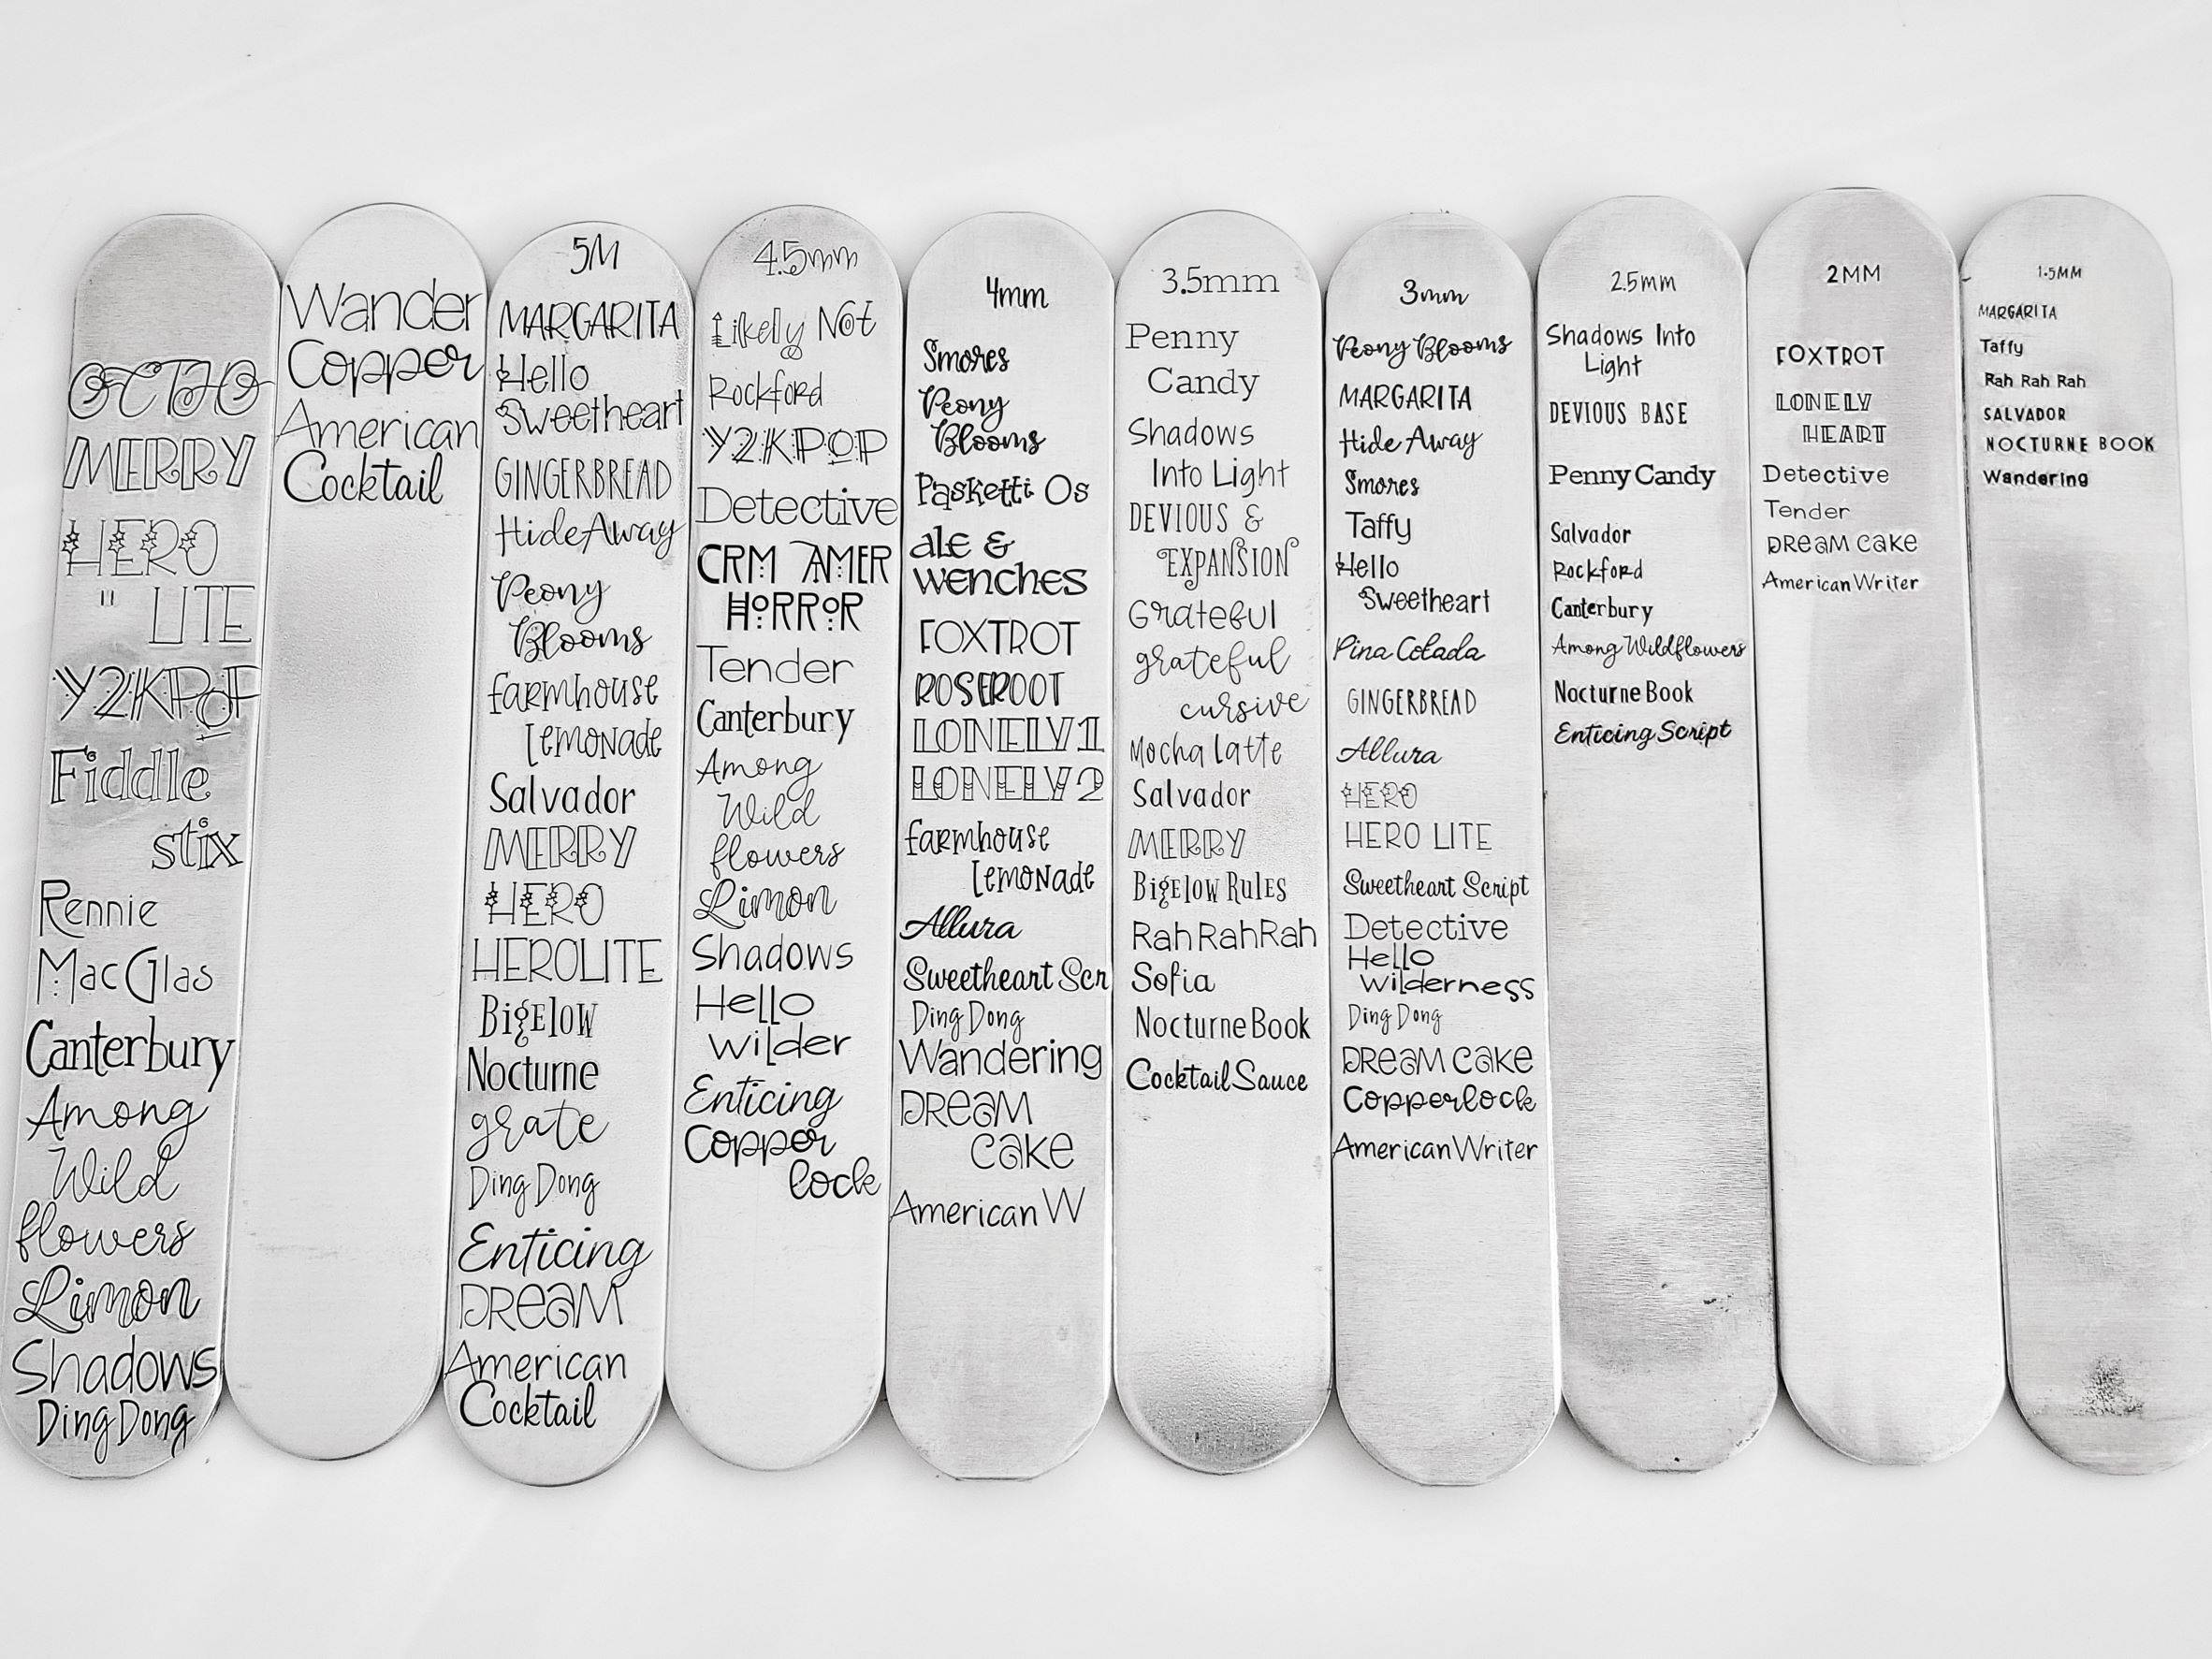 OCTHO
MERRY
HERO
" LITE
Y2KPOP
Fiddle
stix
Rennie
Mac Glas
Canterbury
Among
Wild
flowers
Limon
Shadows
Ding Dong
Wander
Copper
American
Cocktail
5M
MARGARITA
Hello
Sweetheart
GINGERBREAD
HideAway
Peony
Blooms
farmhouse
Lemonade
Salvador
MERRY
HERO
HEROLITE
Bigelow
Nocturne
grate
Ding Dong
Enticing
DREAM
American
Cocktail
4.5mm
Likely Not
Rockford
Y2KPOP
Detective
CRM AMER
HORROR
Tender
Canterbury
Among
Wild
flowers
Limon
Shadows
Hello
wilder
Enticing
Copper
lock
4mm
Smores
Peony
Blooms
Pasketti Os
ale &
wenches
FOXTROT
ROSEROOT
LONELY1
LONELY2
farmhouse
Lemonade
Allura
Sweetheart Scr
Ding Dong
Wandering
DREAM
CAKE
American W
3.5mm
Penny
Candy
Shadows
Into Light
DEVIOUS &
EXPANSION
Grateful
grateful
cursive
Mocha Latte
Salvador
MERRY
Bigelow Rules
Rah RahRah
Sofia
Nocturne Book
Cocktail Sauce
3mm
Peony Blooms
MARGARITA
Hide Away
Smores
Taffy
Hello
Sweetheart
Pina Colada
GINGERBREAD
Allura
HERO
HERO LITE
Sweetheart Script
Detective
Hello
wilderness
Ding Dong
DREAM CAKE
Copperlock
American Writer
2.5mm
Shadows Into
Light
DEVIOUS BASE
Penny Candy
Salvador
Rockford
Canterbury
Among Wildflowers
Nocturne Book
Enticing Script
2MM
FOXTROT
LONELY
HEART
Detective
Tender
DREAM CAKE
American Writer
1.5MM
MARGARITA
Taffy
Rah Rah Rah
SALVADOR
NOCTURNE BOOK
Wandering